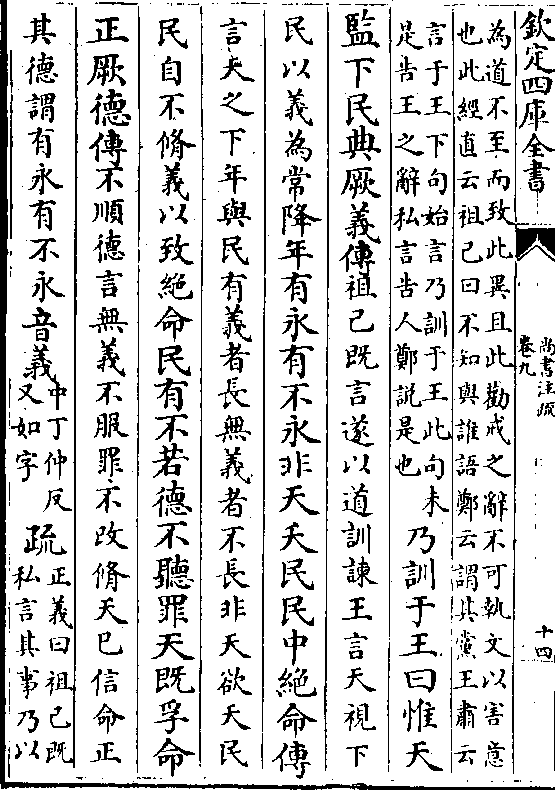 欽定四庫全書
尚書注疏
卷九
十四
為道不至而致此異且此勸戒之辭不可執文以害意
也此經直云祖己曰不知與誰語鄭云謂其黨王肅云
言于王下句始言乃訓于王此句未
是告王之辭私言告人鄭說是也
乃訓于王曰惟天
監下民典厥義傳祖己既言遂以道訓諫王言天視下
民以義為常降年有永有不永非天夭民民中絕命傳
言天之下年與民有義者長無義者不長非天欲夭民
民自不脩義以致絕命民有不若德不聽罪天既孚命
正厥德傳不順德言無義不服罪不改脩天已信命正
其德謂有永有不永音義
中丁仲反
又如字
疏
正義曰祖己既
私言其事乃以